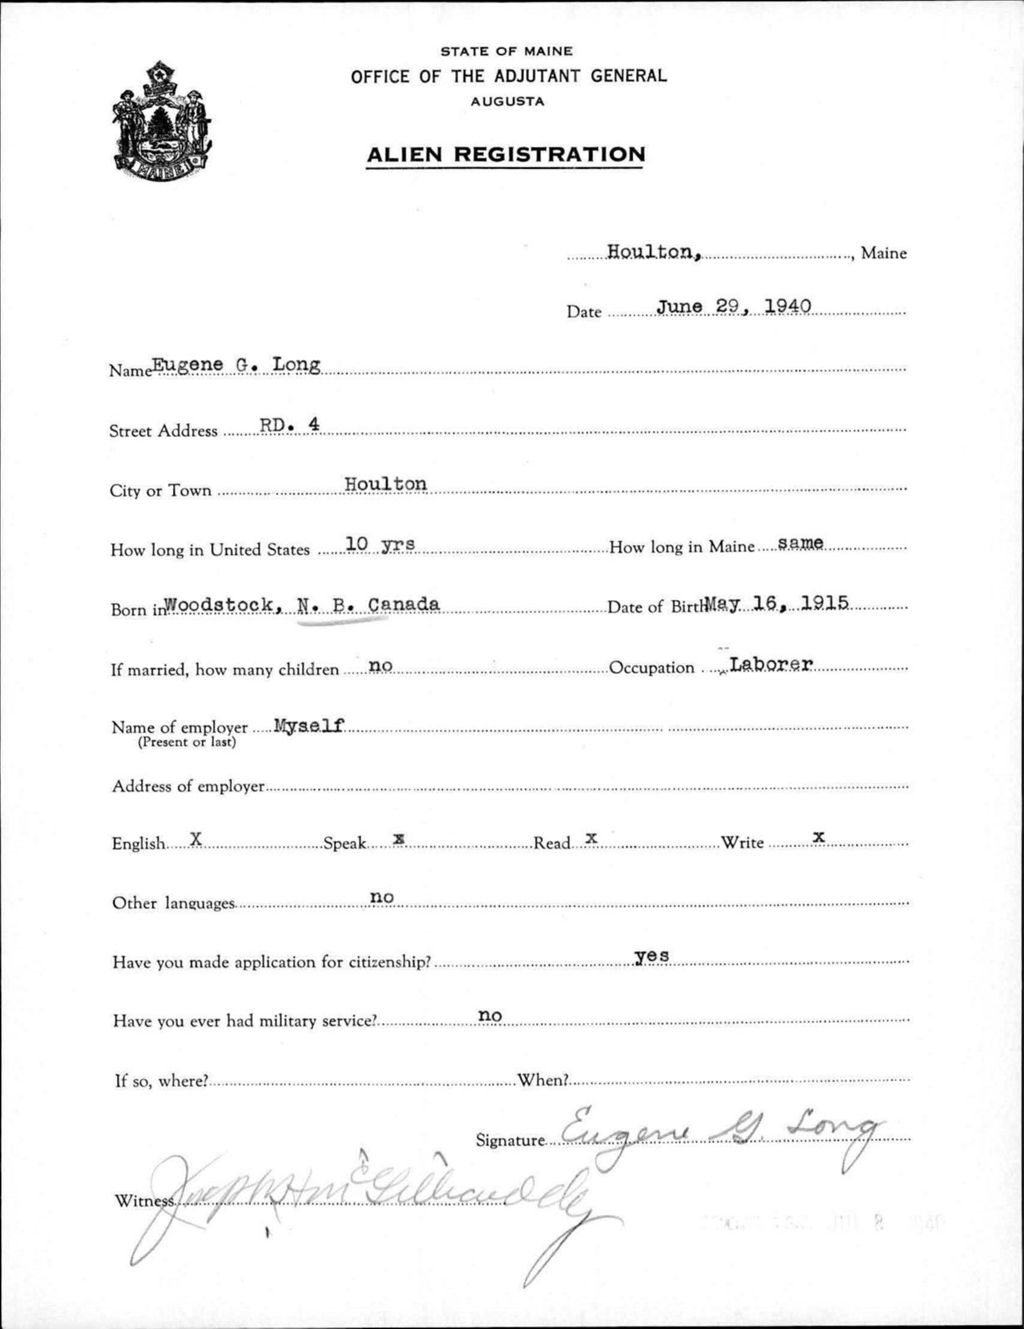 STATE OF MAINE
OFFICE OF THE ADJUTANT GENERAL
AUGUSTA
ALIEN REGISTRATION
MAINE
Houlton, , Maine
Date June 29, 1940
Name Eugene G. Long
Street Address RD. 4
City or Town Houlton
How long in United States 10 yrs How long in Maine same
Born in Woodstock, N. B. Canada Date of Birth May 16, 1915
If married, how many children no Occupation Laborer
Name of employer Myself
(Present or last)
Address of employer
English X Speak x Read X Write X
Other languages no
Have you made application for citizenship? yes
Have you ever had military service? no
If so, where? When?
Signature Eugene G. Long
Witness